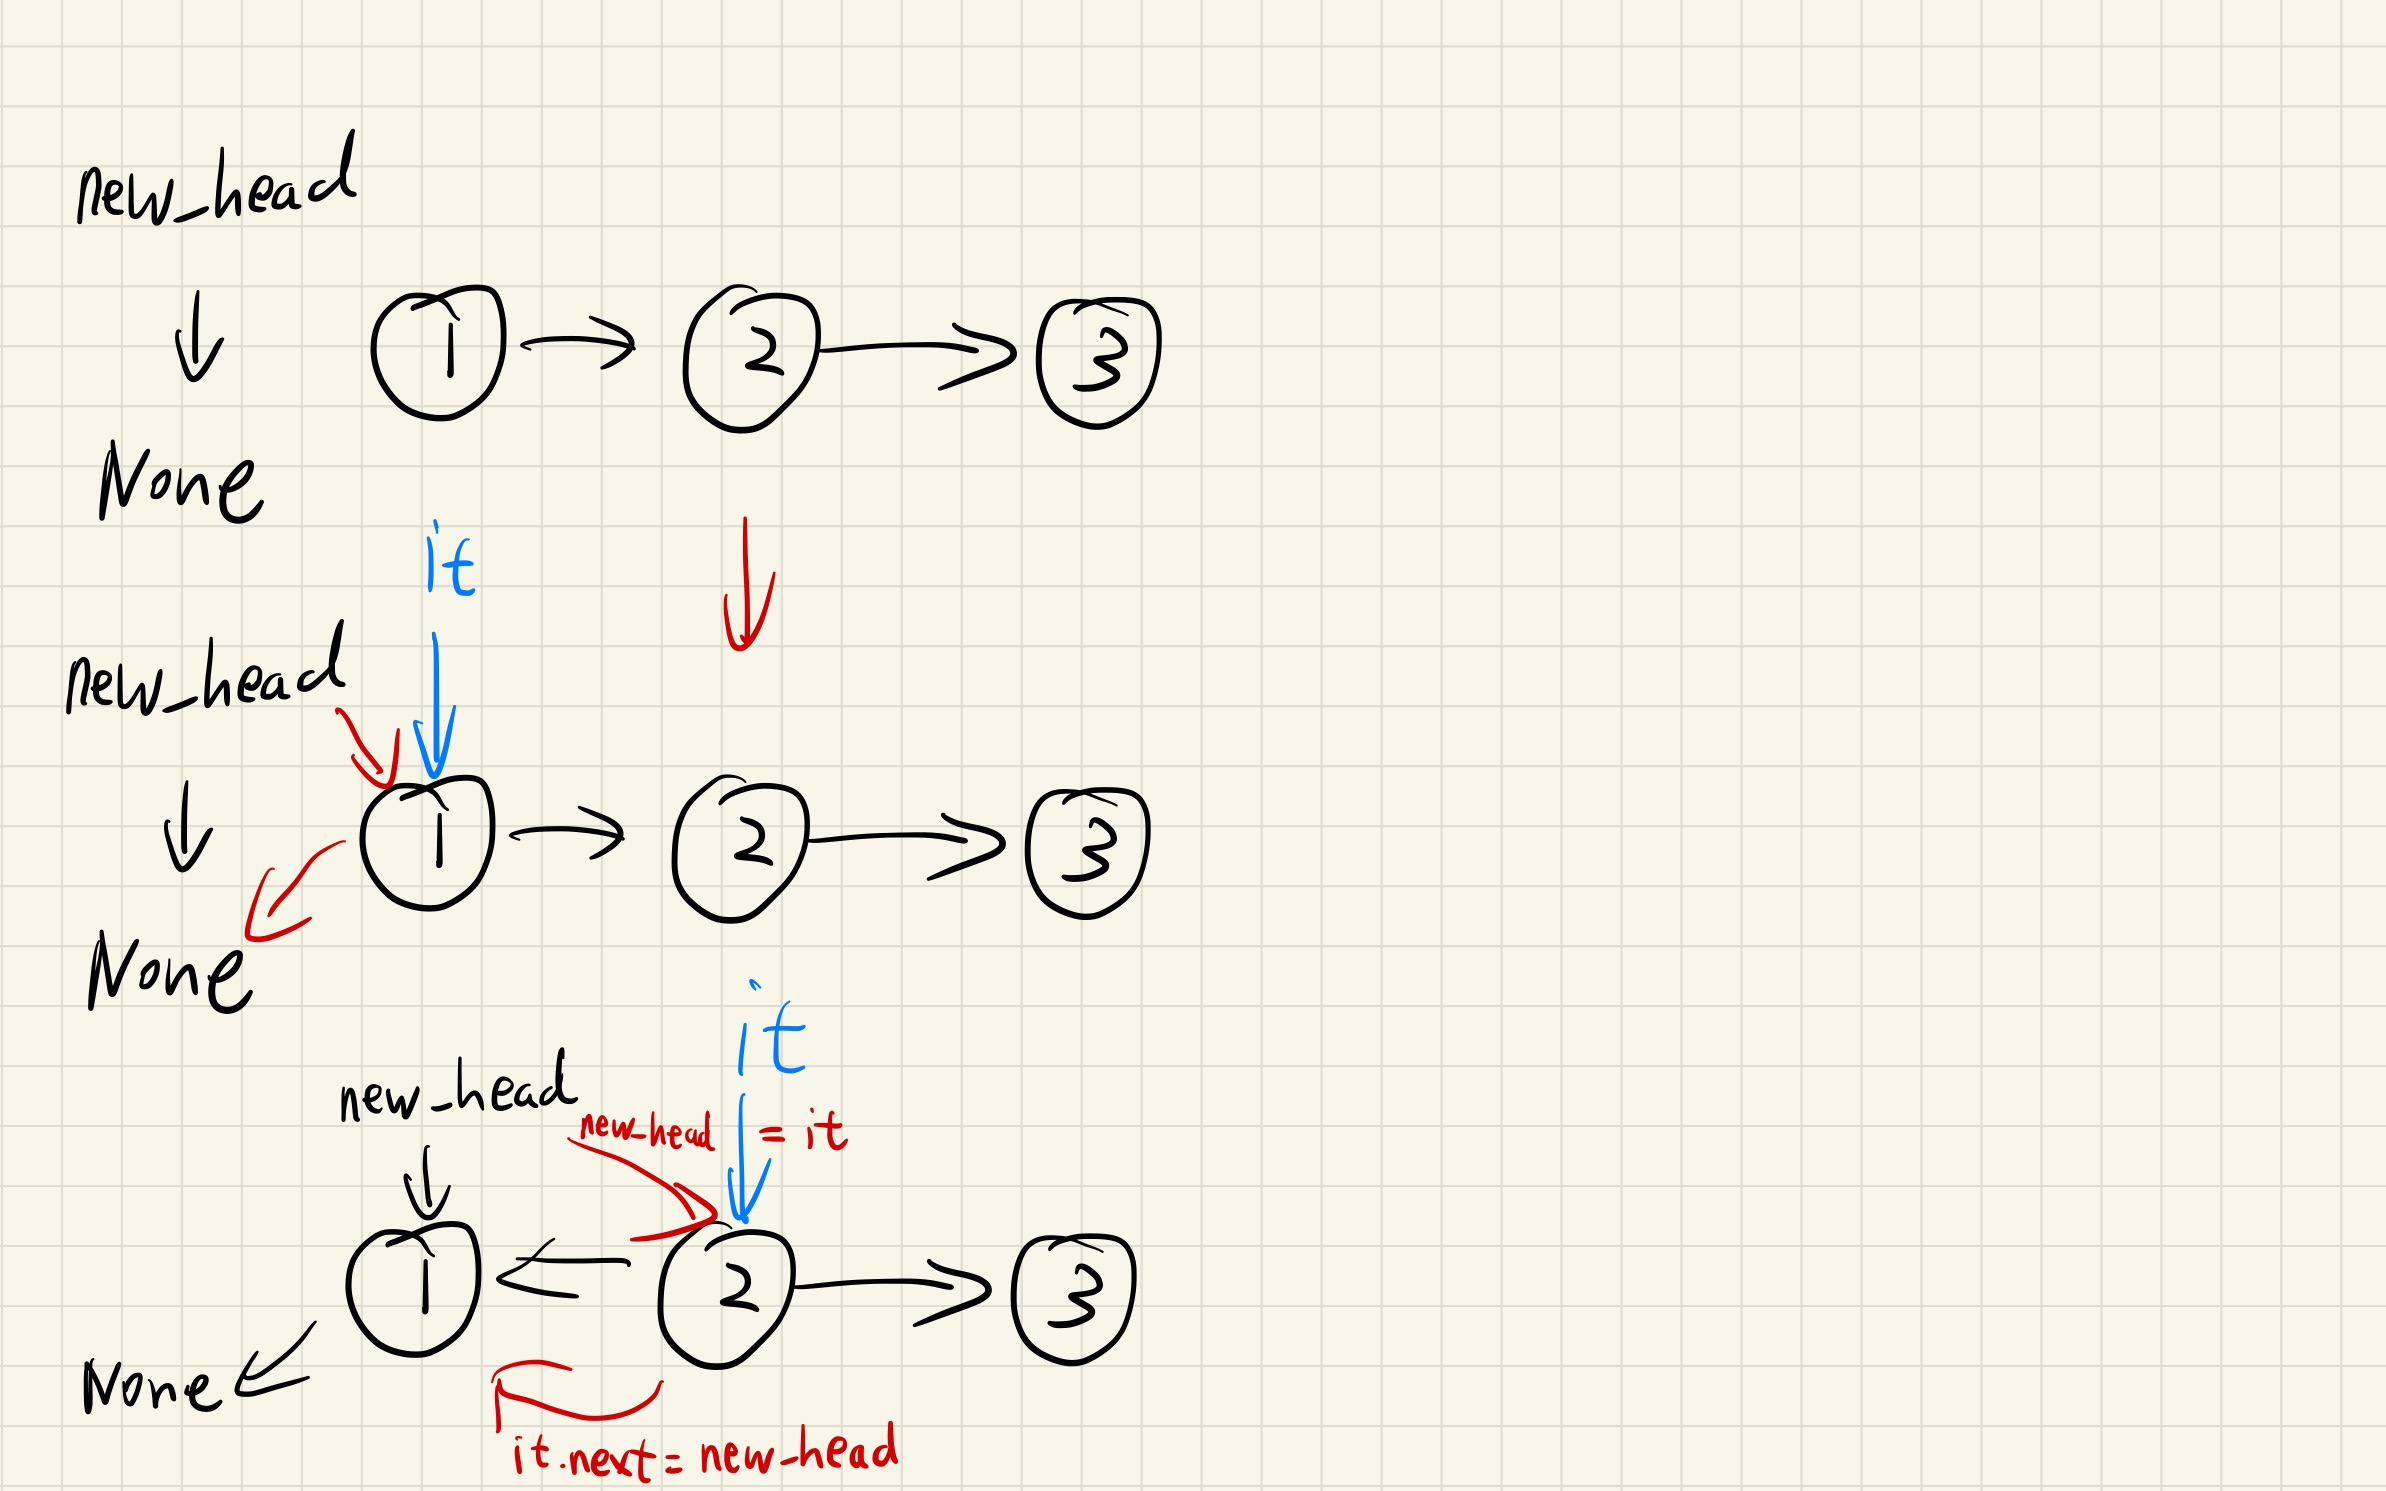 new_head
1 2 3
None
it
new_head
1 2 3
None
it
new_head
new_head = it
1 2 3
None
it.next = new_head